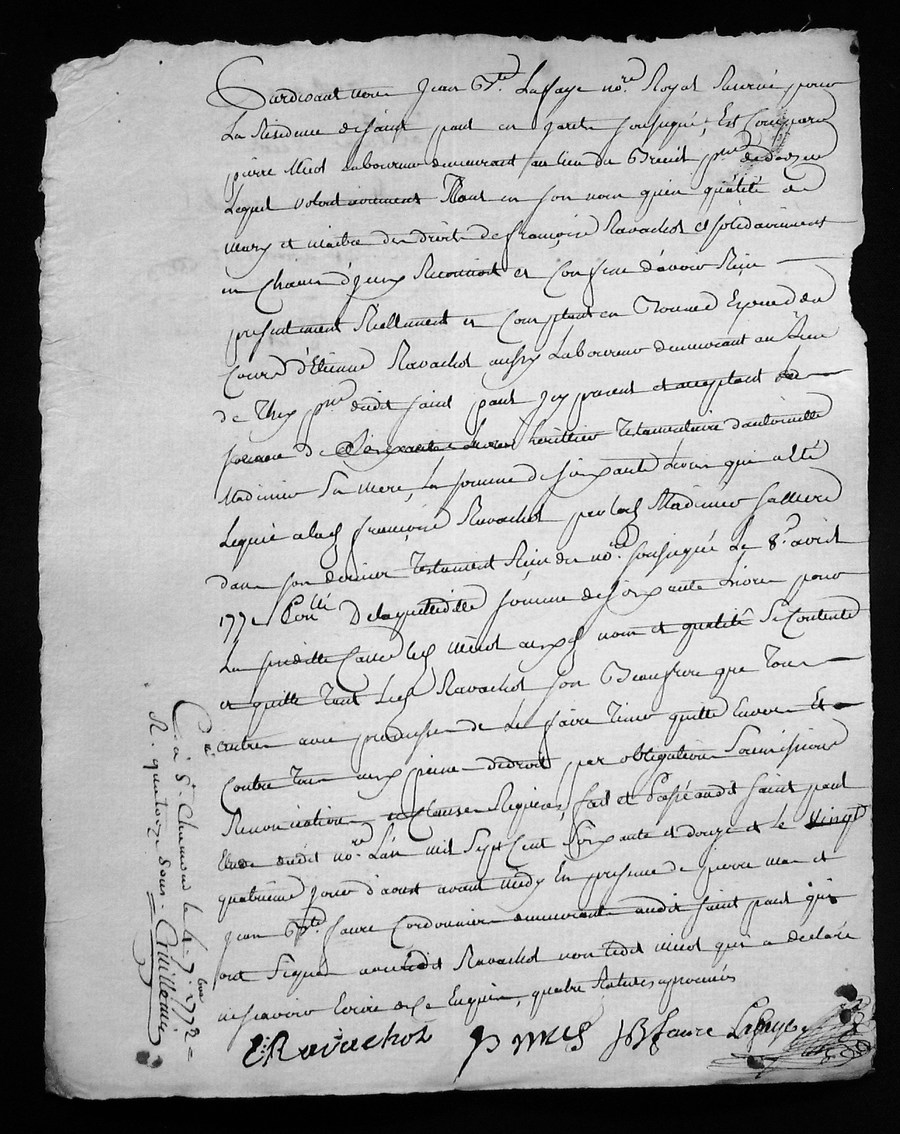 Pardevant nous Jean Bte. Lafaye nore. Royal Reservé pour
La Résidence de saint paul en Jarets soussigné, Est Comparu
pierre Micol Laboureur demeurant au lieu du Breuil psse de
Lequel volontairement Tant en son nom qu'en qualité de
mary et maitre des droits de françoise Ravachol et solidairement
un Chacun d'Eux Reconnoit et Confesse d'avoir Reçu
presentement Reellement et Comptant en Bonnes Especes du
Cours d'Etienne Ravachol aussy Laboureur demeurant au Lieu
de psse dudit saint paul Icy present et acceptant
somme de Soixante Livres heritier Testamentaire d'antoinette
Madinier Sa Mere, La somme de soixante Livres qui a Eté
Leguée a lad françoise Ravachol par lad Madinier sa Mere
dans son dernier Testament Reçu du nore. soussigné Le 8e. avril
177 Conlé De laquelle ditte somme de soixante Livres pour
La susditte Cause led Micol auxd nom et qualité Se Contente
et quitte Tant led Ravachol son Beaufrere que Tous
autres avec promesse de Le faire Tenir quitte Envers Et
Contre Tous aux peines de droit par obligations Soumissions
Renonciations et Clauses Requises, fait et Passé audit saint paul
Etude dudit nore. L'an mil Sept Cent Soixante et douze et le Vingt
quatrieme jour d'aoust avant Midy En presence de pierre et
Jean Bte. faure Cordonnier demeurants audit saint paul qui
ont Signé avec ledit Ravachol non ledit Micol qui a declaré
ne sçavoir Ecrire de ce Enquis, quatre Ratures aprouvés
E Ravachol JB faure Lafaye
C.lé à St. Chamond le 4. 7bre 1772 =
R. quatorze Sous =